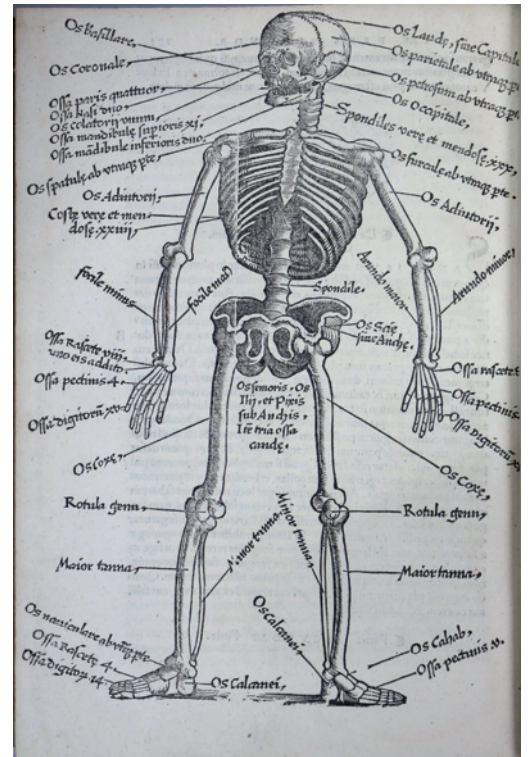 Os basillare,
Os Coronale,
Ossa paris quattuor
Ossa Nasi duo
Os Colatorij unum,
Ossa mandibulę supioris xj,
Ossa mādibule inferioris duo,
Os spatulę ab vtraqꝫ pte,
Os Adiutorij,
Costę verę et men
dosę, xxiiij,
focile minus
focile maꝰ
Ossa Rascete viij,
uno eis addito,
Ossa pectinis 4,
Ossa digitorū xv
Os Coxę,
Rotula genu,
Maior tanna,
Minor tanna,
Os naviculare ab vtraqꝫ pte
Ossa Rascetę 4,
Ossa digitorū 14
Os Calcanei,
Os Laudę, sive Capitale
Os parietale ab vtraqꝫ
Os petrosum ab vtraqꝫ
Os Occipitale,
Spondiles verę et mendosę, xxx,
Os furculę ab vtraqꝫ pte.
Os Adiutorij,
Arundo maior
Arundo minor,
Spondile,
Os Scię
sive Anchę,
Os femoris. Os
Ilij, et Pixis
sub Anchis,
Itē tria ossa
caudę.
Ossa rascetę
Ossa pectinis,
Ossa Digitorū
Os Coxę,
Rotula genu,
Minor tanna,
Maior tanna,
Os Calcanei,
Os Cahab,
Ossa pectinis v.